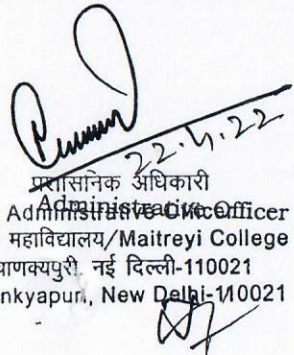 22.4.22
प्रशासनिक अधिकारी
Administrative Officer
महाविद्यालय/Maitreyi College
णक्यपुरी, नई दिल्ली-110021
nkyapuri, New Delhi-110021